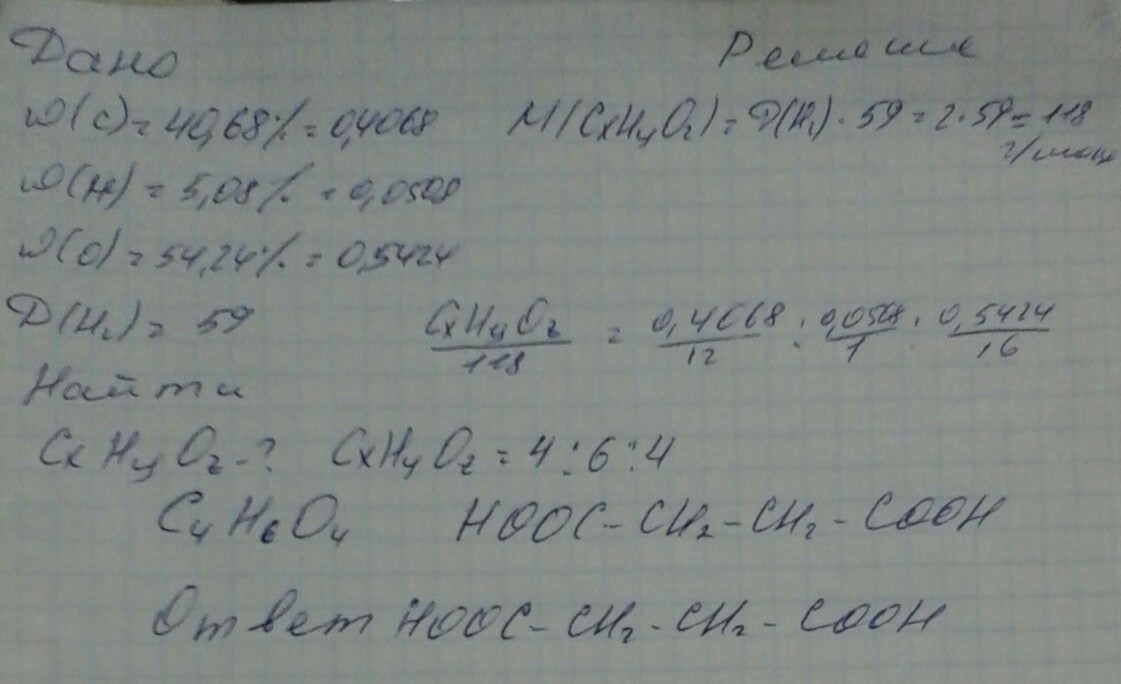 Дано
Решение
W(C) = 40,68% = 0,4068
M(CxHyOz) = D(H₂) · 59 = 2·59 = 118 г/моль
W(H) = 5,08% = 0,0508
W(O) = 54,24% = 0,5424
D(H₂) = 59
CxHyOz/118 = 0,4068/12 : 0,0508/1 : 0,5424/16
Найти
CxHyOz - ?
CxHyOz = 4:6:4
C₄H₆O₄
HOOC-CH₂-CH₂-COOH
Ответ HOOC-CH₂-CH₂-COOH